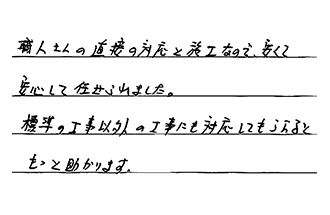 職人さんの直接の対応と施工なので、安くて
安心して任せられました。
標準の工事以外の工事にも対応してもらえると
もっと助かります。